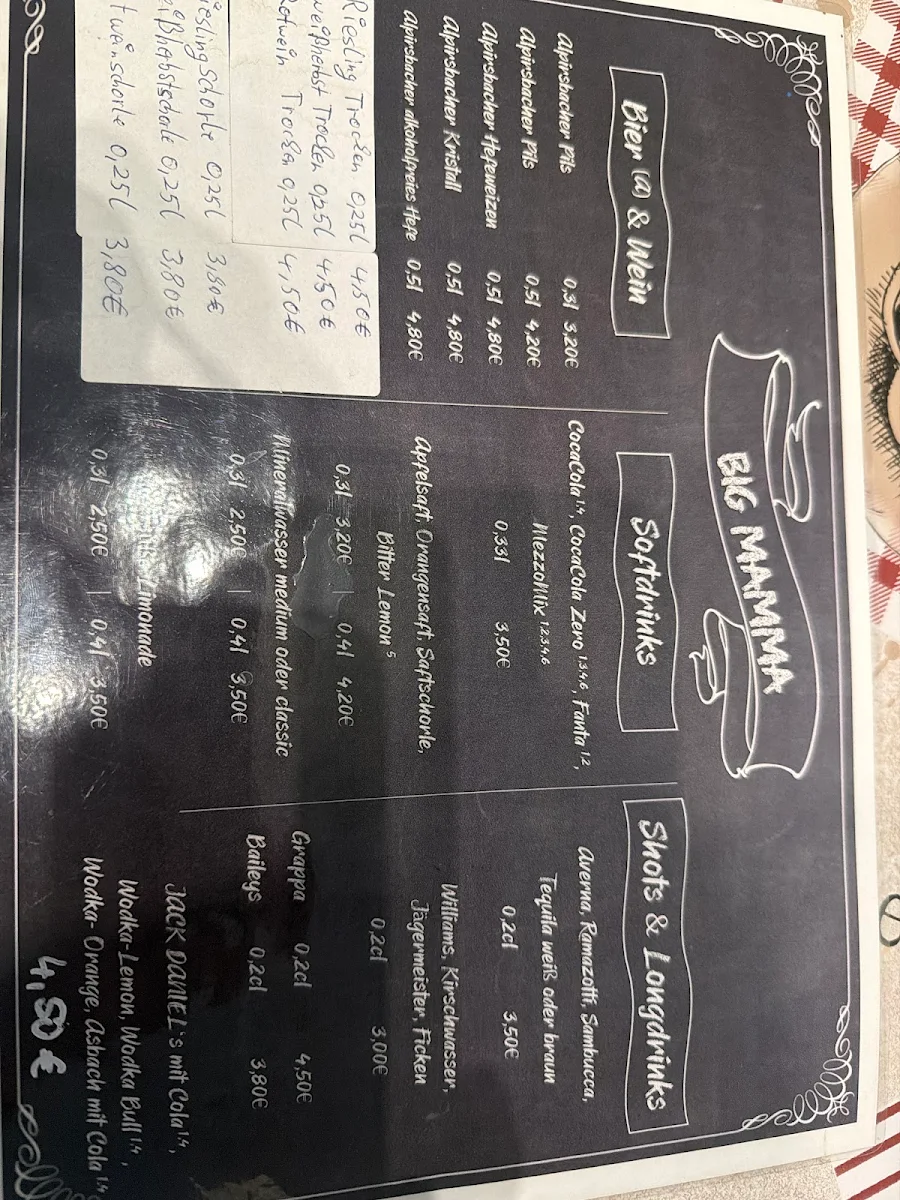 BIG MAMMA
Bier (a) & Wein
Alpirsbacher Pils 0,3l 3,20€
Alpirsbacher Pils 0,5l 4,20€
Alpirsbacher Hefeweizen 0,5l 4,80€
Alpirsbacher Kristall 0,5l 4,80€
Alpirsbacher alkoholfreies Hefe 0,5l 4,80€
Riesling Trocken 0,25l 4,50€
Trocken 0,25l 4,50€
Rotwein Trocken 0,25l 4,50€
0,25l 3,80€
0,25l 3,80€
0,25l 3,80€
Softdrinks
CocaCola 1,4, CocaCola Zero 1,3,4,6, Fanta 1,2,
MezzoMix 1,2,3,4,6
0,33l 3,50€
Apfelsaft, Orangensaft, Saftschorle,
Bitter Lemon 5
0,3l 3,20€ | 0,4l 4,20€
Mineralwasser medium oder classic
0,3l 2,50€ | 0,4l 3,50€
Limonade
0,3l 2,50€ | 0,4l 3,50€
Shots & Longdrinks
Averna, Ramazotti, Sambucca,
Tequila weiß oder braun
0,2cl 3,50€
Williams, Kirschwasser,
Jägermeister, Ficken
0,2cl 3,00€
Grappa 0,2cl 4,50€
Baileys 0,2cl 3,80€
JACK DANIEL's mit Cola 1,4,
Wodka-Lemon, Wodka Bull 1,4,
Wodka- Orange, Asbach mit Cola 1,4
4,80€